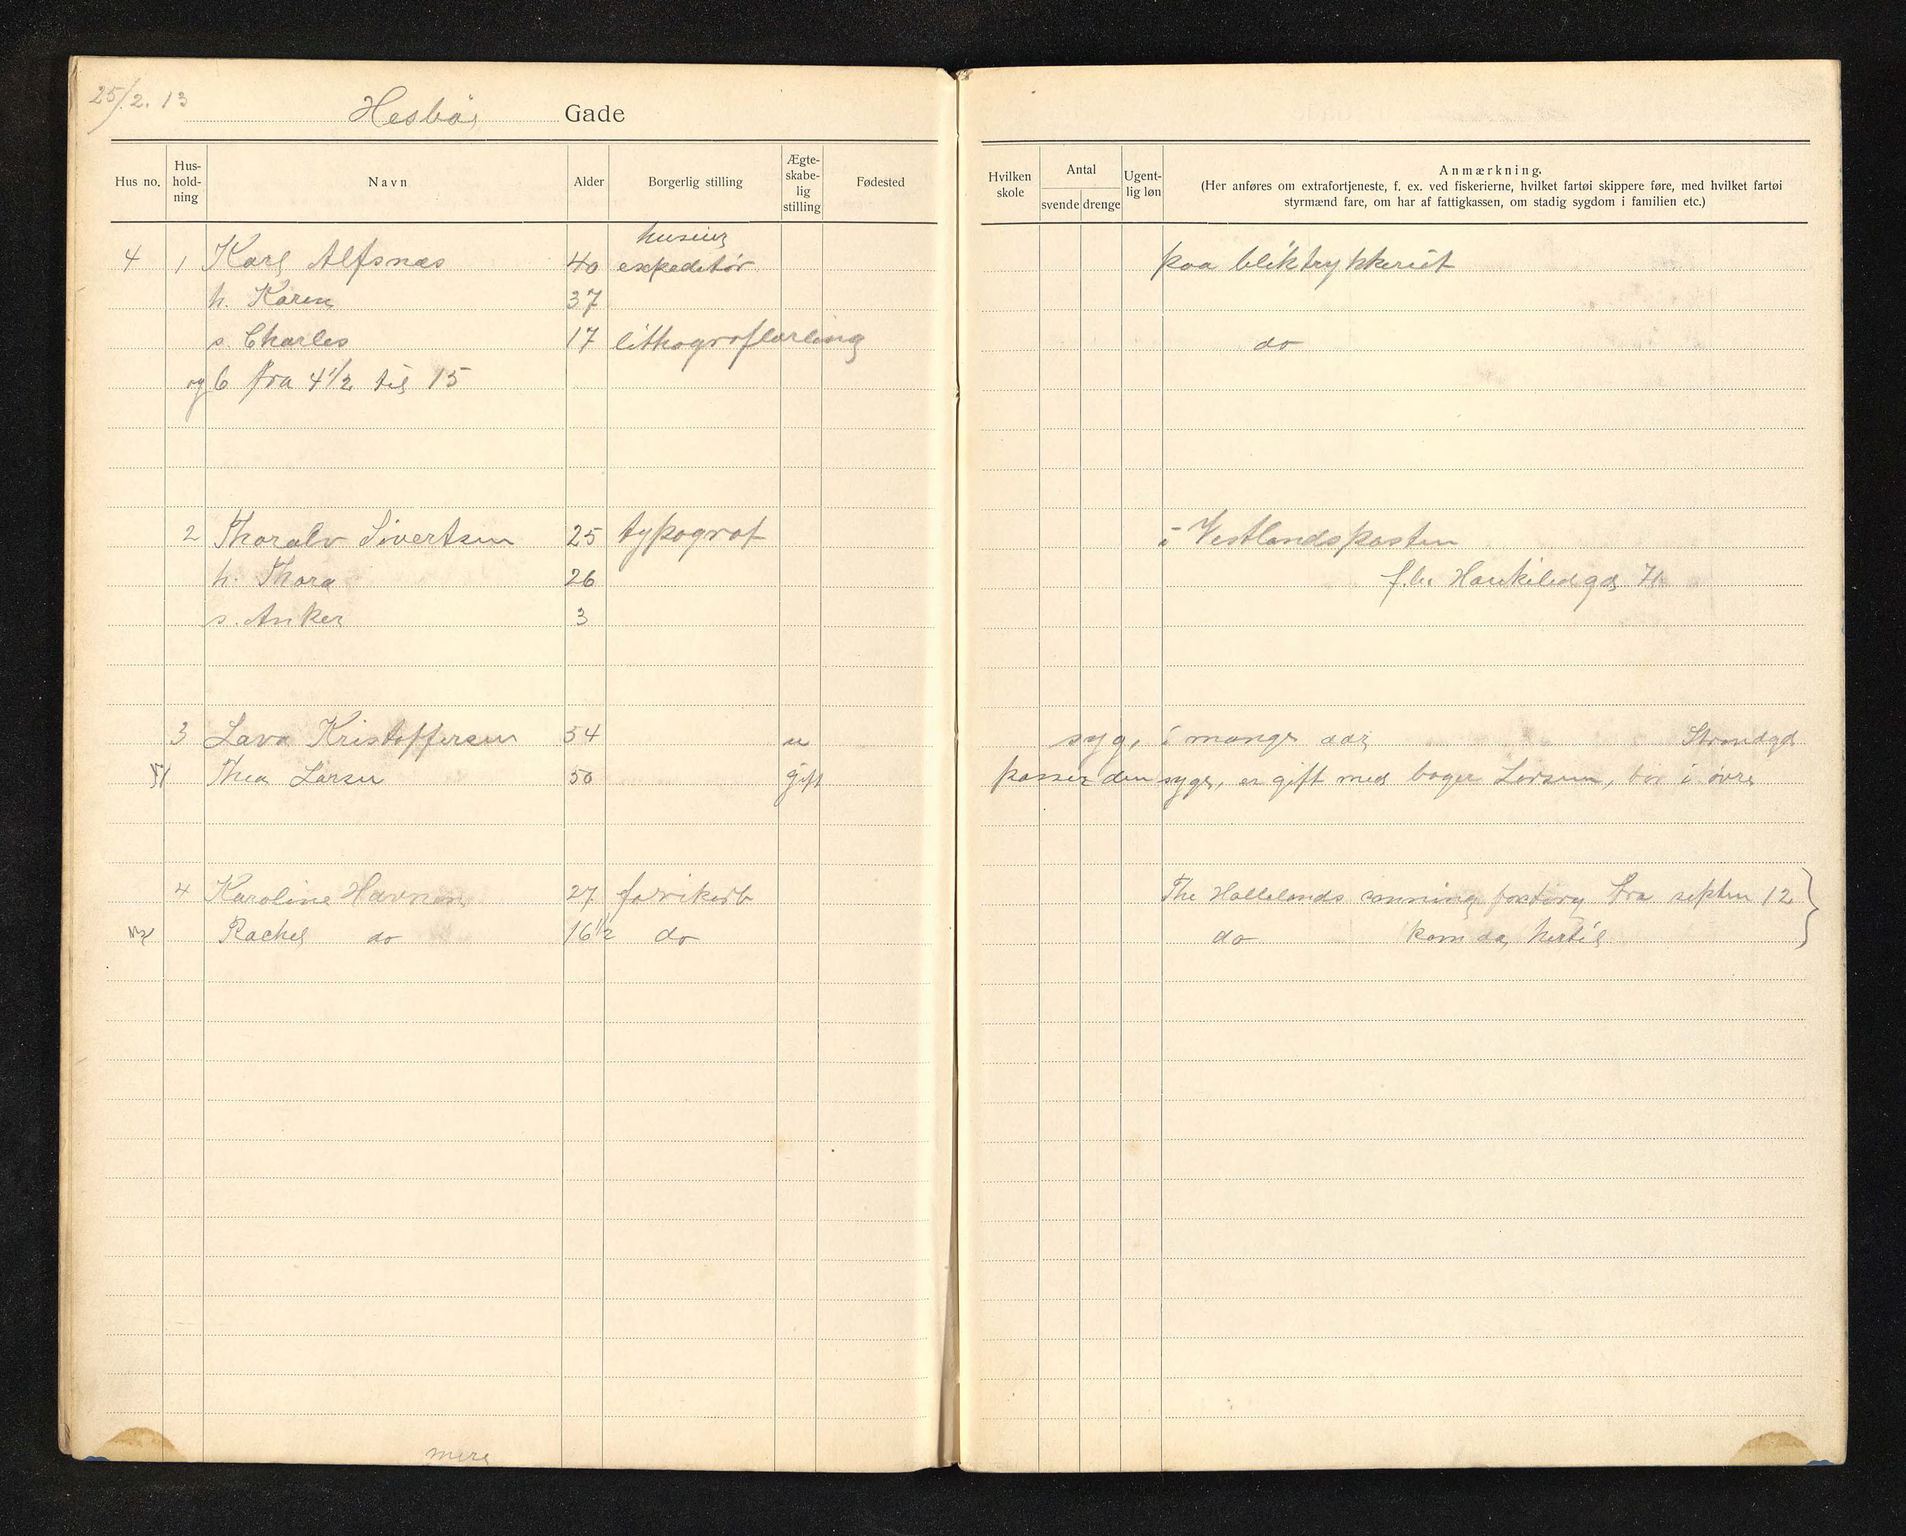 25/2. 13
Hesbø Gade
Hus no. Hus-hold-ning Navn Alder Borgerlig stilling Ægte-skabe-lig stilling Fødested Hvilken skole Antal svende drenge Ugent-lig løn Anmærkning.
(Her anføres om extrafortjeneste, f. ex. ved fiskerierne, hvilket fartøi skippere føre, med hvilket fartøi
styrmænd fare, om har af fattigkassen, om stadig sygdom i familien etc.)
huseier
4 1 Karl Alfsnæs 40 expeditør paa bliktrykkeriet
h. Karen 37
s. Charles 17 lithograflærling do
og 6 fra 4 1/2 til 15
2 Thoralv Sivertsen 25 typograf i Vestlandsposten
h. Thora 26 f.br Haukeliedgd
s. Anker 3
3 Lava Kristoffersen 54 u syg, i mange aar Strandgd
Thea Larsen 50 gift passer den syge, er gift med bager Larsen, bor i øvre
4 Karoline Havnen 27 fabrikarb The Hallelands canning fra septem 12
Rachel do 16 1/2 do do kom da hertil
mere